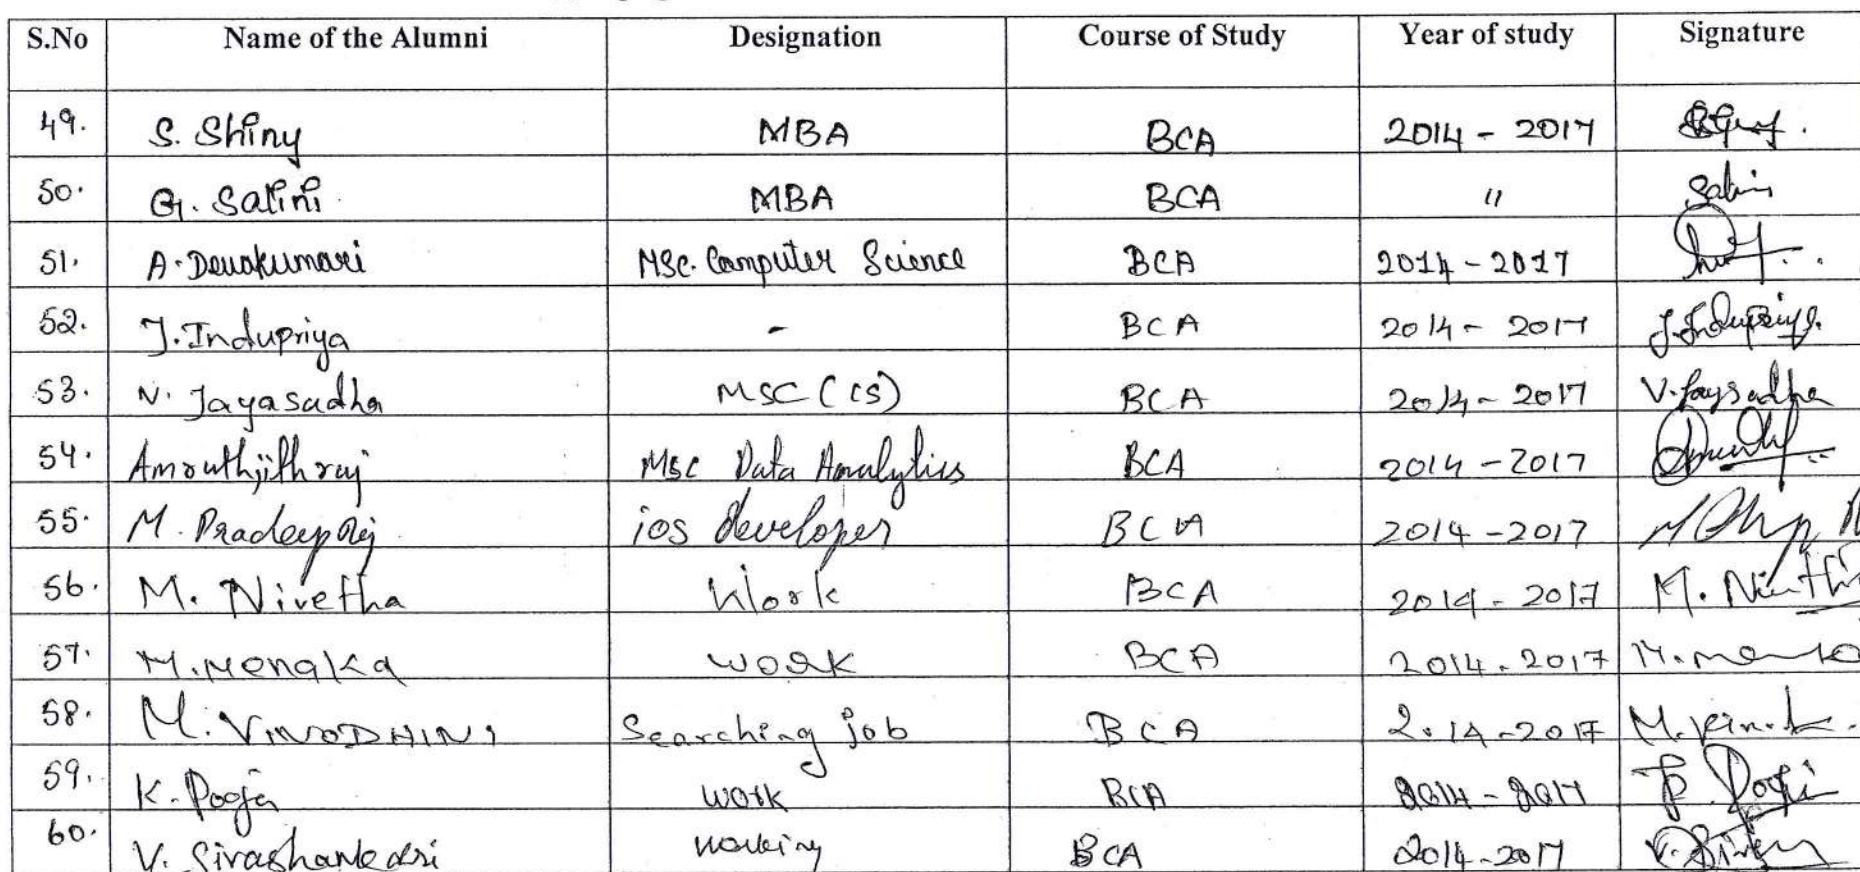 S.No Name of the Alumni Designation Course of Study Year of study Signature
49. S. Shiny MBA BCA 2014 - 2017
50. G. Salini MBA BCA " Salini
51. A. Devakumari MSc. Computer Science BCA 2014 - 2017
52. J. Indupriya - BCA 2014 - 2017 J. Indupriya
53. V. Jayasudha MSC (CS) BCA 2014 - 2017 V. Jaysudha
54. Amruthjithraj MSc Data Analytics BCA 2014 - 2017
55. M. Pradeepraj ios developer BCA 2014 - 2017
56. M. Nivetha Work BCA 2014 - 2017 M. Nivetha
57. M. Menaka work BCA 2014 - 2017
58. M. VINODHINI Searching job BCA 2014 - 2017
59. K. Pooja work BCA 2014 - 2017
60. V. Sivashankari working BCA 2014 - 2017